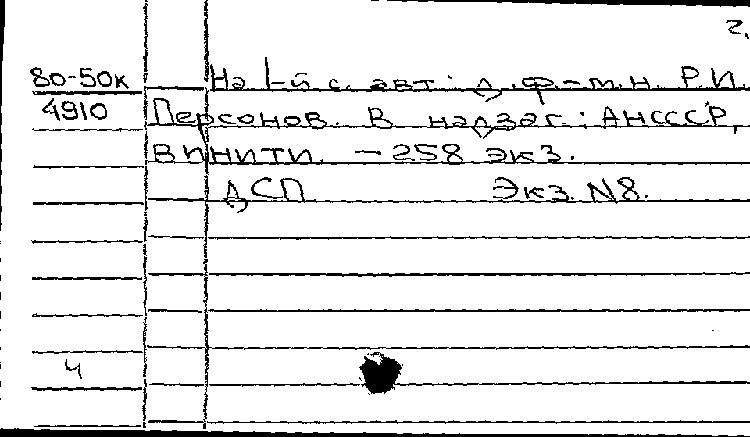 2.
80-50к На 1-й с. авт.: д.ф.-м.н. Р.И.
4910 Персонов. В надзаг.: АНСССР,
ВИНИТИ. – 258 экз.
ДСП Экз. N8.
4